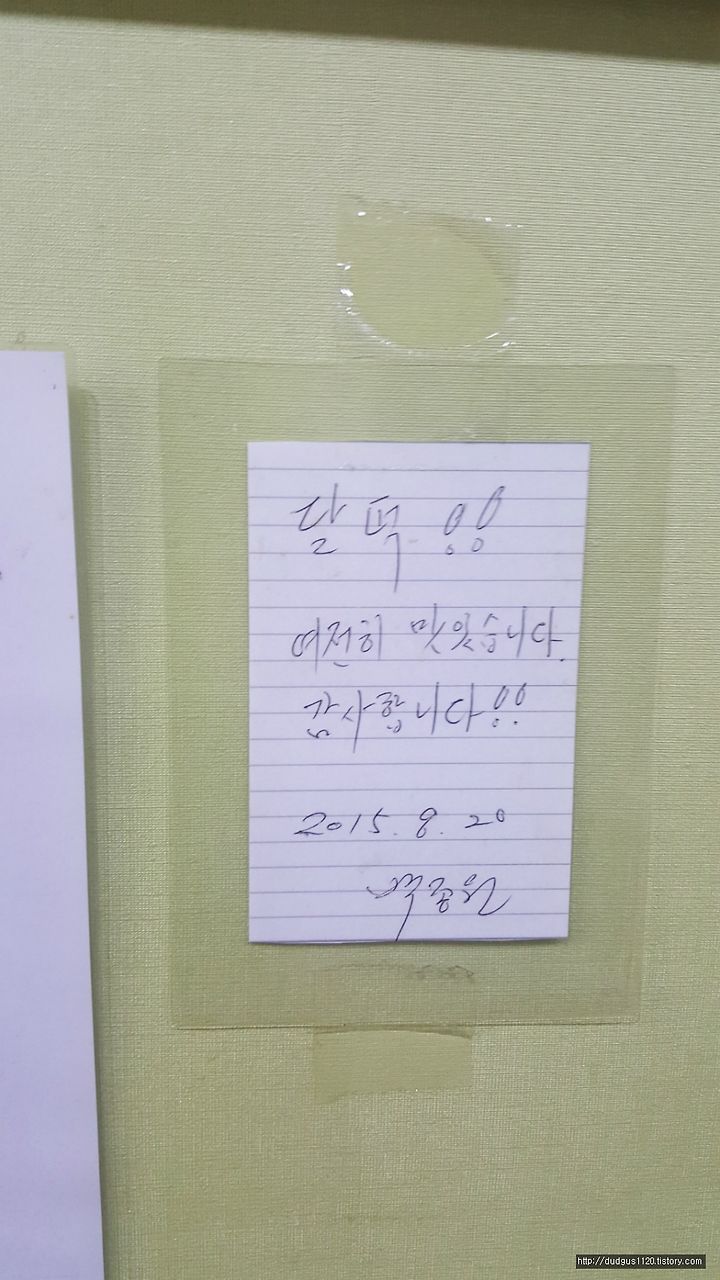 달떡!!
여전히 맛있습니다.
감사합니다!!
2015. 8. 20
백종원
http://dudgus1120.tistory.com